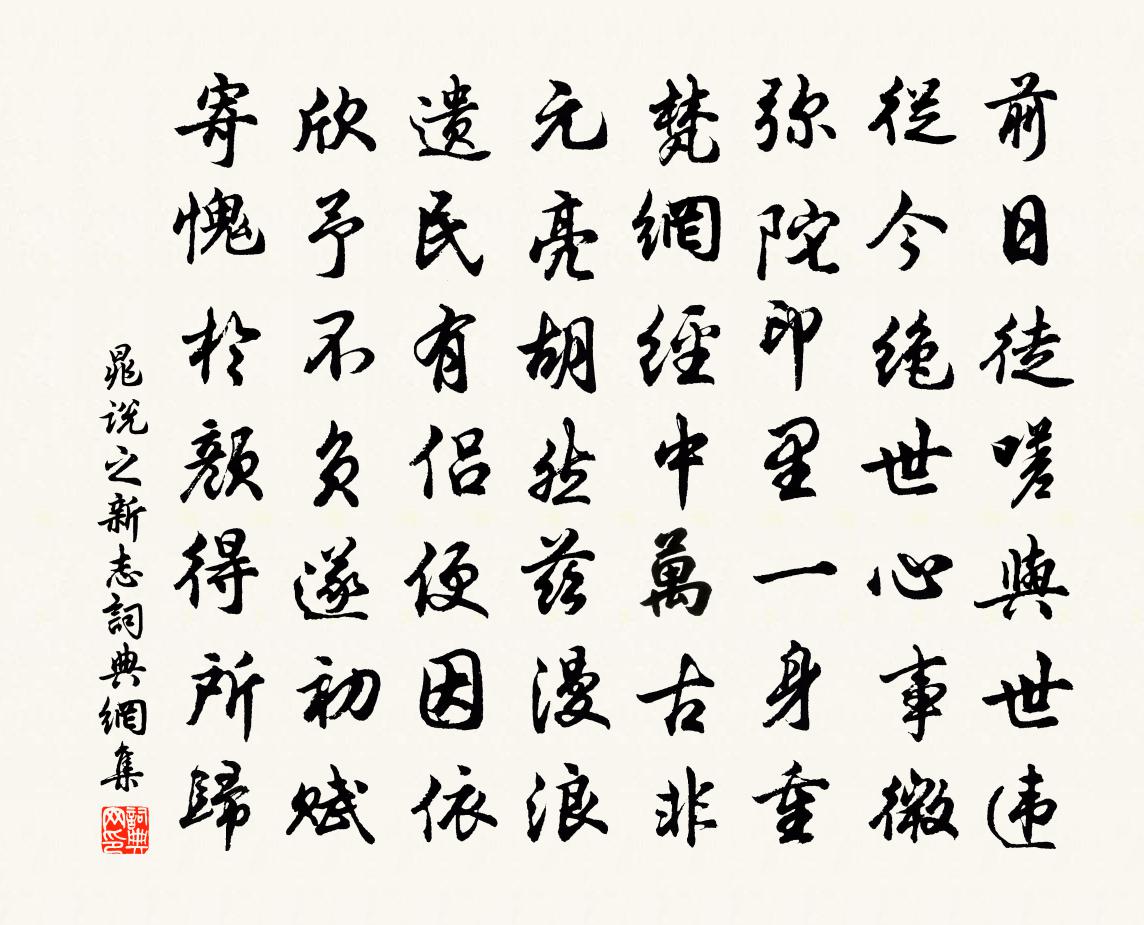 前日徒嗟與世违
從今绝世心事微
弥陀印里一身重
梵網經中萬古非
元亮胡然兹漫浪
遗民有侣便因依
欣予不负遂初赋
寄愧於颜得所歸
晁说之新志詞典網集
詞典网印